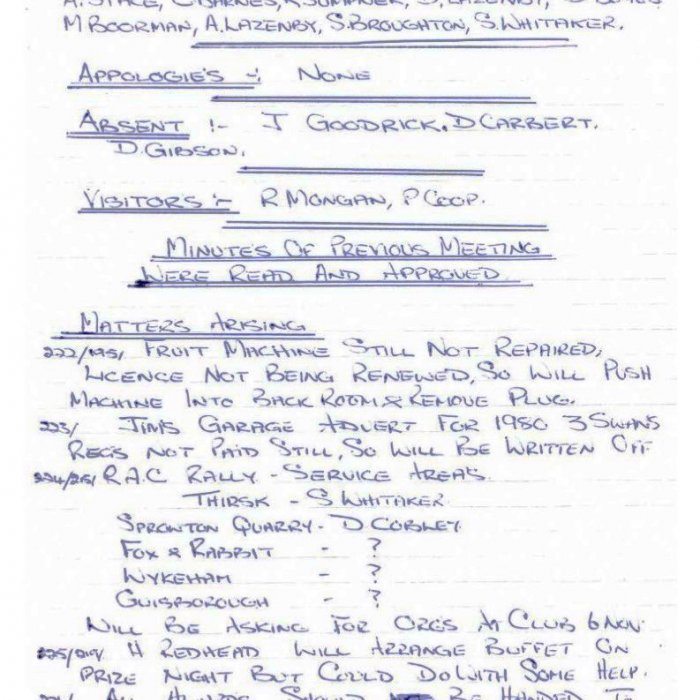 M BOORMAN, A. LAZENBY, S. BROUGHTON, S. WHITAKER.
APPOLOGIE'S -: NONE
ABSENT :- J GOODRICK. D CARBERT.
D. GIBSON.
VISITORS :- R MONGAN, P COOP.
MINUTE'S OF PREVIOUS MEETING
WERE READ AND APPROVED
MATTERS ARISING
222/195/ FRUIT MACHINE STILL NOT REPAIRED,
LICENCE NOT BEING RENEWED, SO WILL PUSH
MACHINE INTO BACK ROOM & REMOVE PLUG.
223/ JIM'S GARAGE ADVERT FOR 1980 3 SWANS
REG'S NOT PAID STILL, SO WILL BE WRITTEN OFF
R.A.C RALLY - SERVICE AREA'S
THIRSK - S WHITAKER
SPROXTON QUARRY - D COBLEY
FOX & RABBIT - ?
WYKEHAM - ?
GUISBOROUGH - ?
WILL BE ASKING FOR ORG'S AT CLUB 6 NOV
H REDHEAD WILL ARRANGE BUFFET ON
PRIZE NIGHT BUT COULD DO WITH SOME HELP.